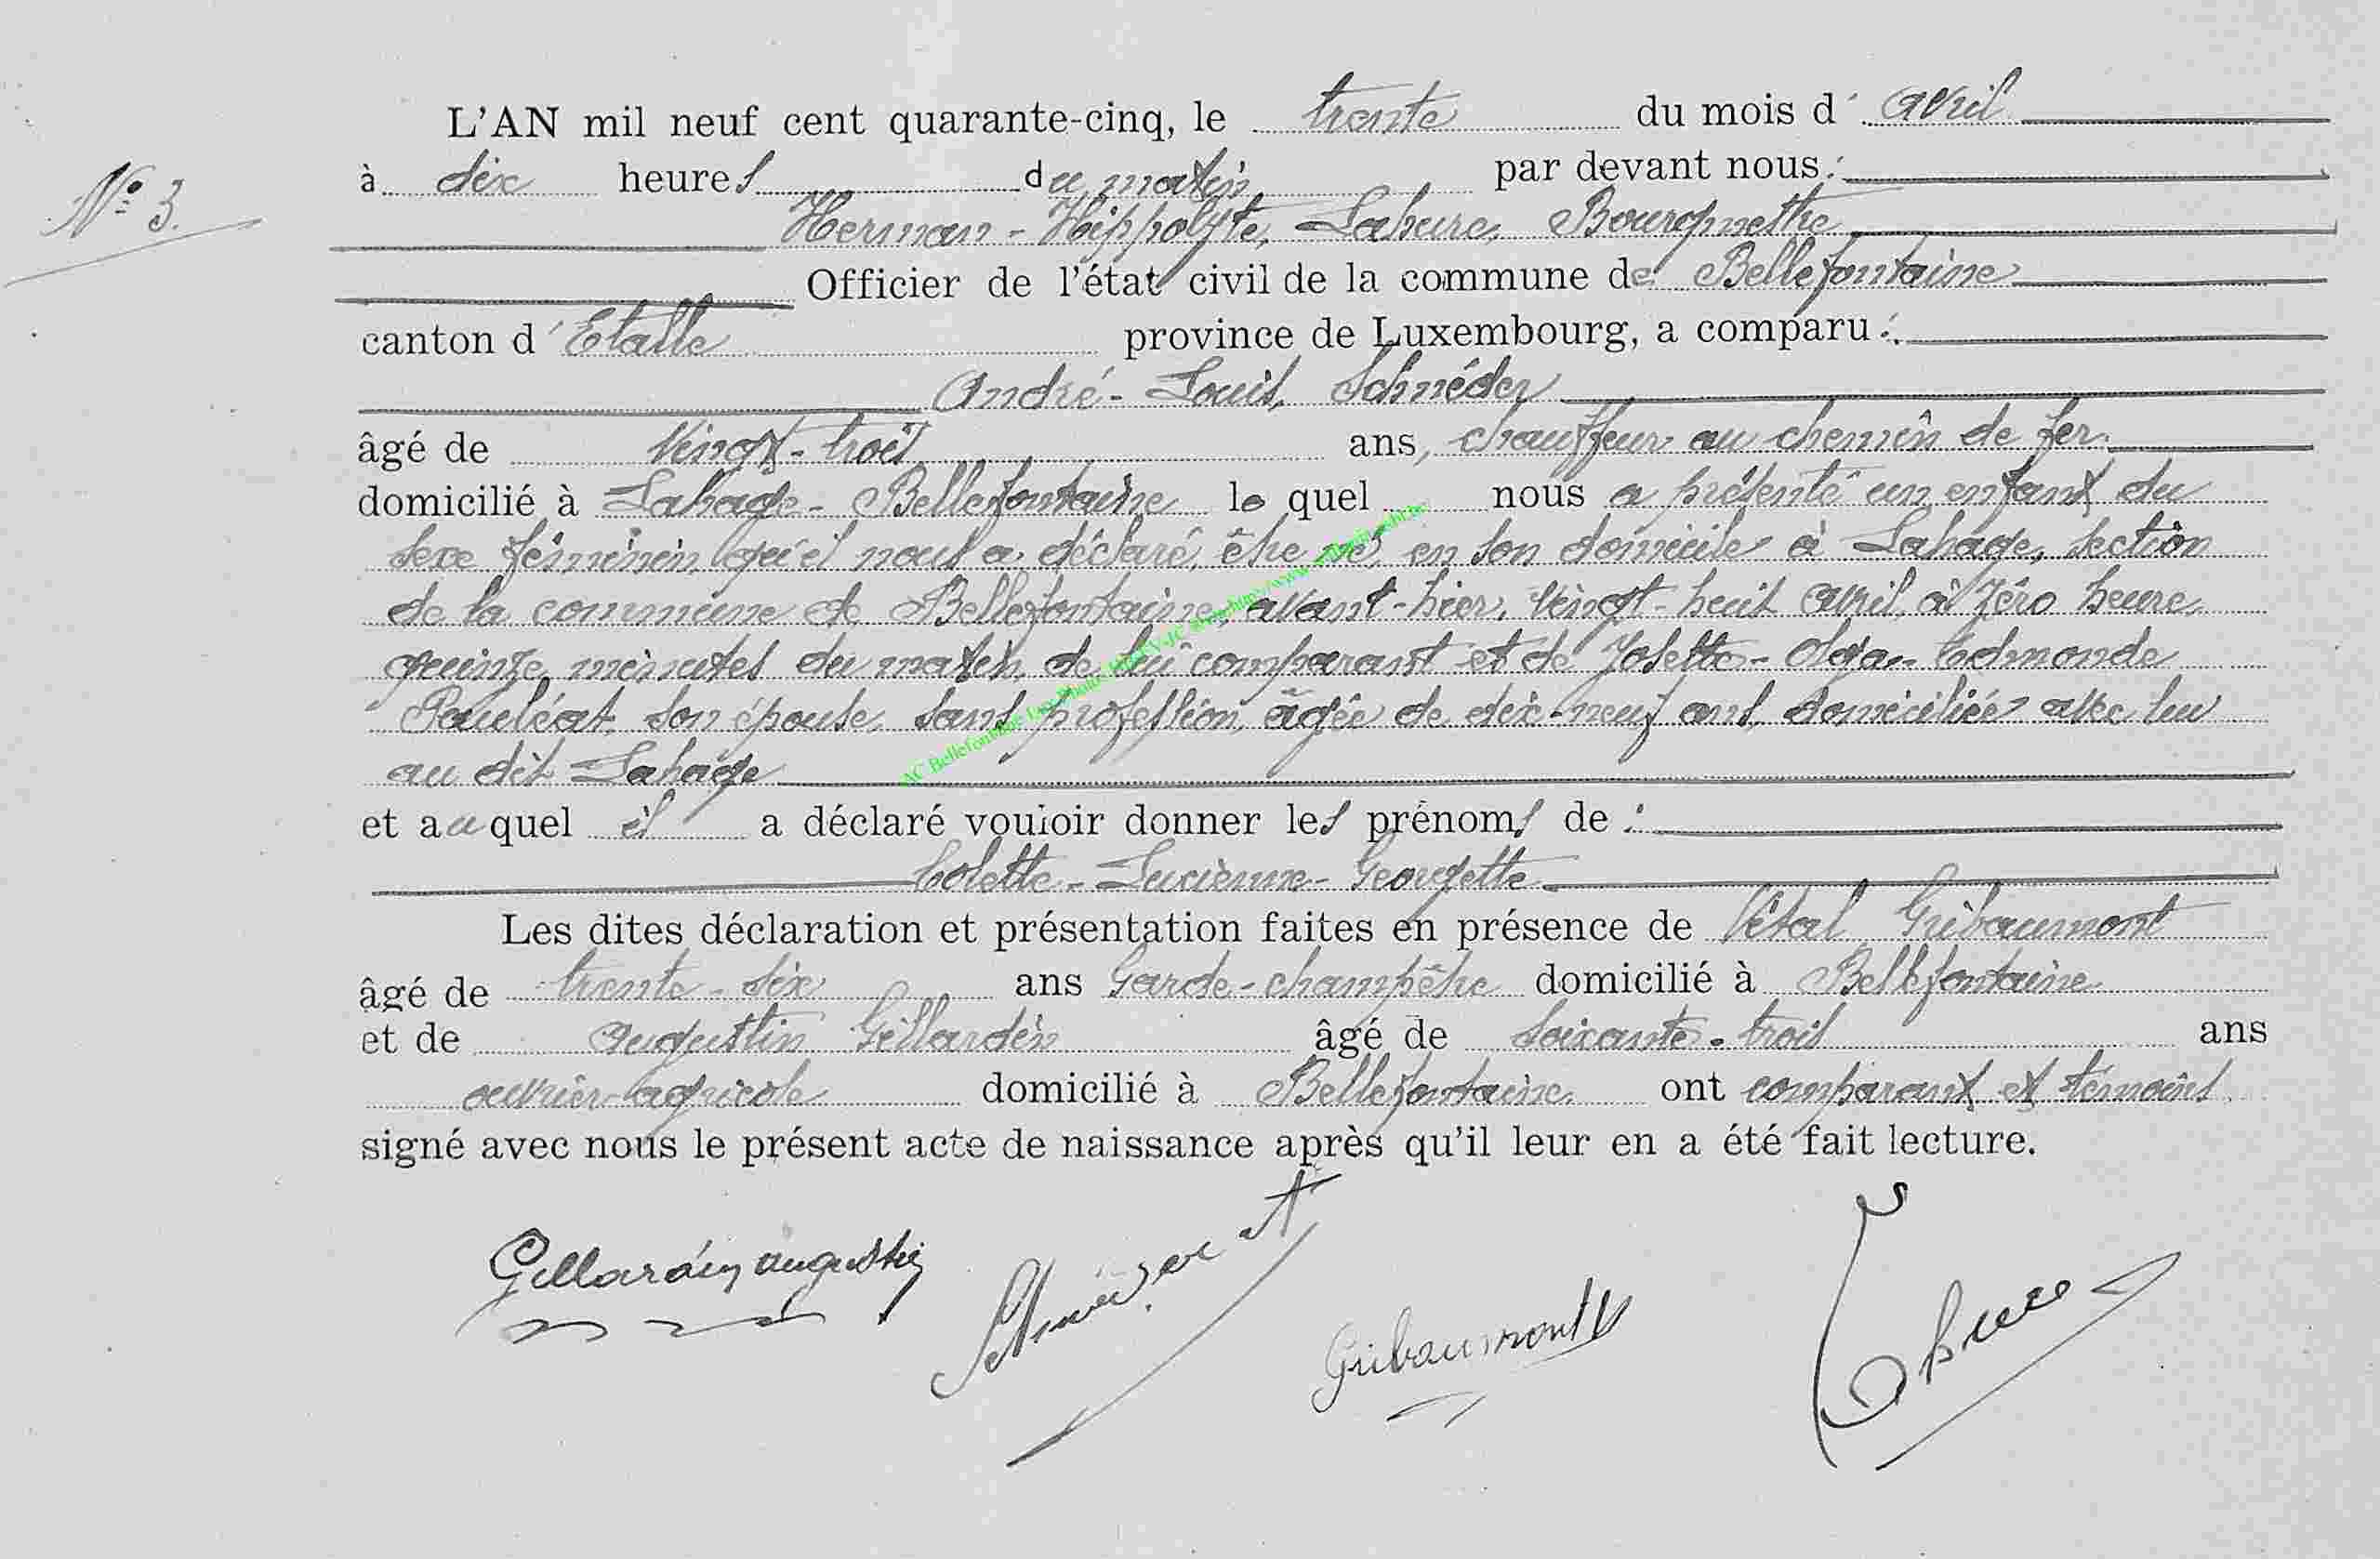 L'AN mil neuf cent quarante-cinq, le trente du mois d'avril
N° 3.
à dix heures du matin par devant nous :
Herman - Hippolyte, Lahure, Bourgmestre
Officier de l'état civil de la commune de Bellefontaine
canton d'Etalle province de Luxembourg, a comparu :
André - Louis, Schnéder
âgé de vingt-trois ans, chauffeur au chemin de fer,
domicilié à Lahage - Bellefontaine lequel nous a présenté un enfant du
sexe féminin, qu'il nous a déclaré, être né, en son domicile à Lahage, section
de la commune de Bellefontaine, avant-hier, vingt-huit avril, à zéro heure
quinze minutes du matin, de lui comparant et de Josette - Olga - Edmonde
Pauléat, son épouse, sans profession, âgée de dix-neuf ans, domiciliée avec lui
au dit Lahage
et auquel il a déclaré vouloir donner les prénoms de :
Colette - Lucienne - Georgette
Les dites déclaration et présentation faites en présence de Vital Gribaumont
âgé de trente-six ans Garde-champêtre domicilié à Bellefontaine
et de Augustin Gillardin âgé de soixante-trois ans
ouvrier-agricole domicilié à Bellefontaine ont comparant et témoins
signé avec nous le présent acte de naissance après qu'il leur en a été fait lecture.
Gillardin augustin
Gribaumont V
AC Bellefontaine